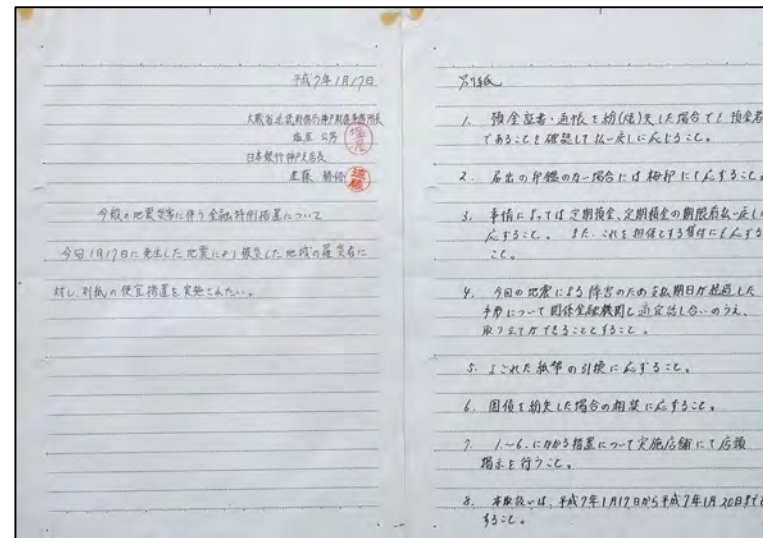 平成7年1月17日
大蔵省近畿財務局神戸財務事務所長
塩屋 公男
日本銀行神戸支店長
遠藤 勝裕
今般の地震災害に伴う金融特例措置について
今回1月17日に発生した地震により被災した地域の罹災者に
対し、別紙の便宜措置を実施されたい。
別紙
1. 預金証書・通帳を紛(焼)失した場合でも預金者
であることを確認して払い戻しに応ずること。
2. 届出の印鑑のない場合には拇印にて応ずること。
3. 事情によっては定期預金、定期積金の期限前払い戻し
応ずること。また、これを担保とする貸付にも応ずる
こと。
4. 今回の地震による障害のため支払期日が経過した
手形について関係金融機関と適宜話し合いのうえ、
取り立てができることとすること。
5. よごれた紙幣の引換に応ずること。
6. 国債を紛失した場合の相談に応ずること。
7. 1.~6.にかかる措置について実施店舗にて店頭
掲示を行うこと。
8. 本取扱いは、平成7年1月17日から平成7年1月20日まで
すること。